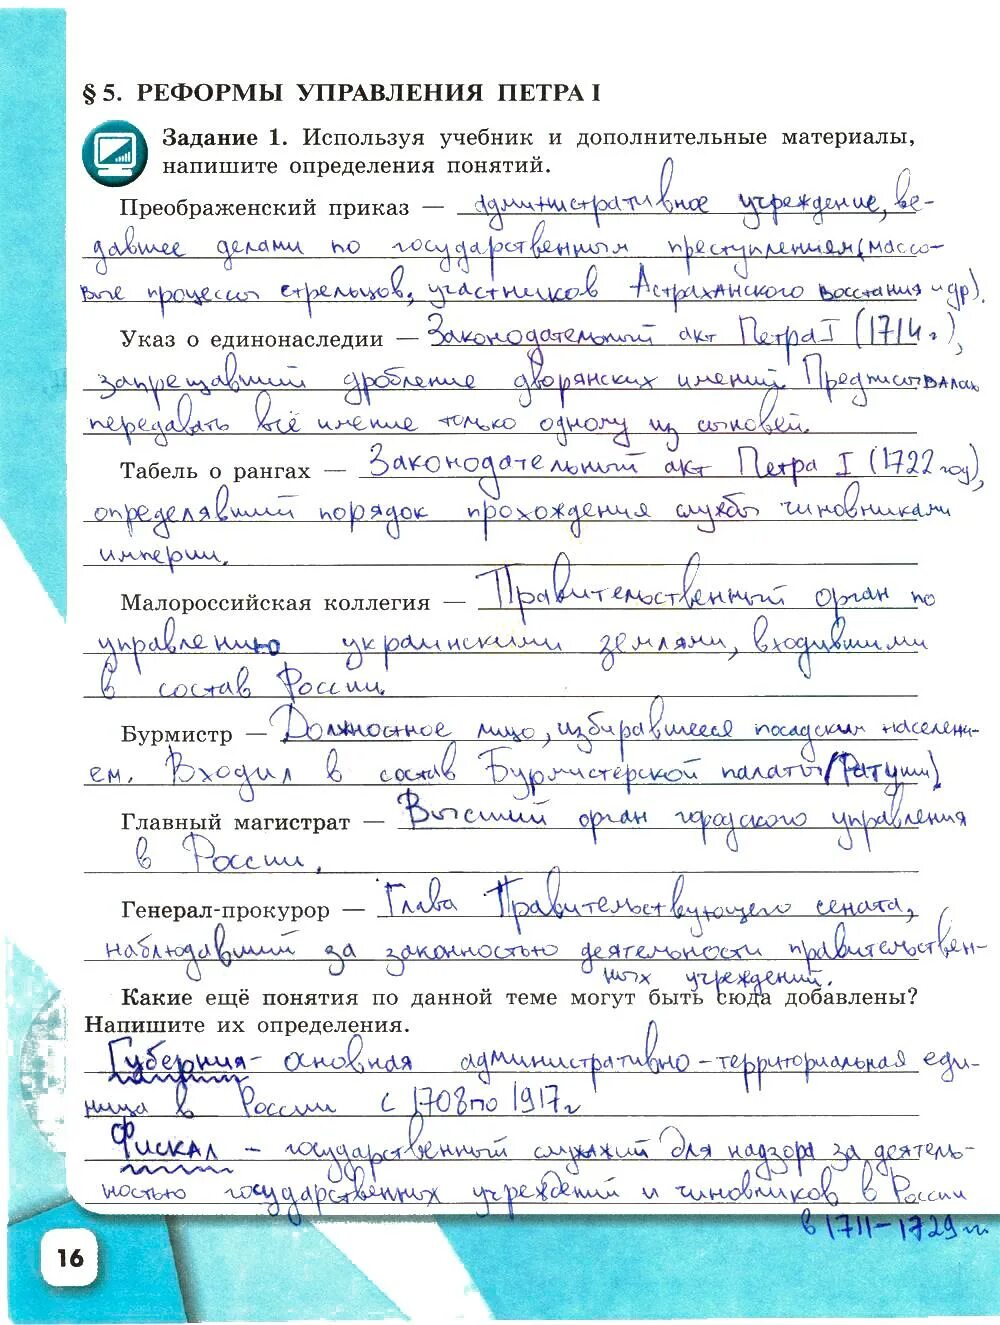 § 5. РЕФОРМЫ УПРАВЛЕНИЯ ПЕТРА I
Задание 1. Используя учебник и дополнительные материалы,
напишите определения понятий.
Преображенский приказ — административное учреждение, ве-
давшее делами по государственным преступлениям (массо-
вые процессы стрельцов, участников Астраханского восстания и др).
Указ о единонаследии — Законодательный акт Петра I (1714 г),
запрещавший дробление дворянских имений. Предписывалах
передавать всё имение только одному из сыновей.
Табель о рангах — Законодательный акт Петра I (1722 год),
определявший порядок прохождения службы чиновниками
империи.
Малороссийская коллегия — Правительственный орган по
управлению украинскими землями, входившими
в состав России.
Бурмистр — Должностное лицо, избиравшееся посадским населени-
ем. Входил в состав Бурмистерской палаты (Ратуши)
Главный магистрат — Высший орган городского управления
в России.
Генерал-прокурор — Глава Правительствующего сената,
наблюдавший за законностью деятельности правительствен-
ных учреждений.
Какие ещё понятия по данной теме могут быть сюда добавлены?
Напишите их определения.
Губерния - основная административно-территориальная еди-
ница в России с 1708 по 1917 г
Фискал — государственный служащий для надзора за деятель-
ностью государственных учреждений и чиновников в России
в 1711-1729 гг.
16